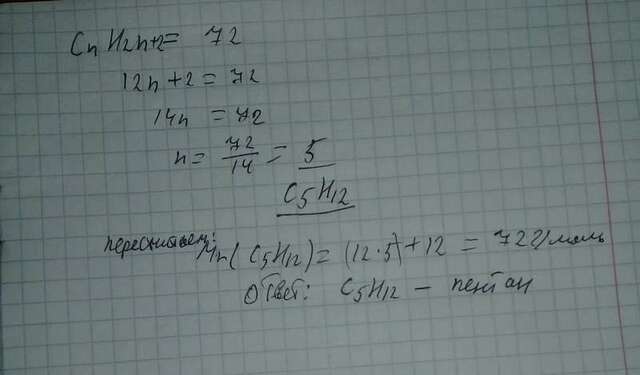 CnH2n+2 = 72
12n+2 = 72
14n = 72
n = 72/14 = 5
C5H12
пересчитаем: Mr(C5H12) = (12·5)+12 = 72г/моль
Ответ: C5H12 – пентан